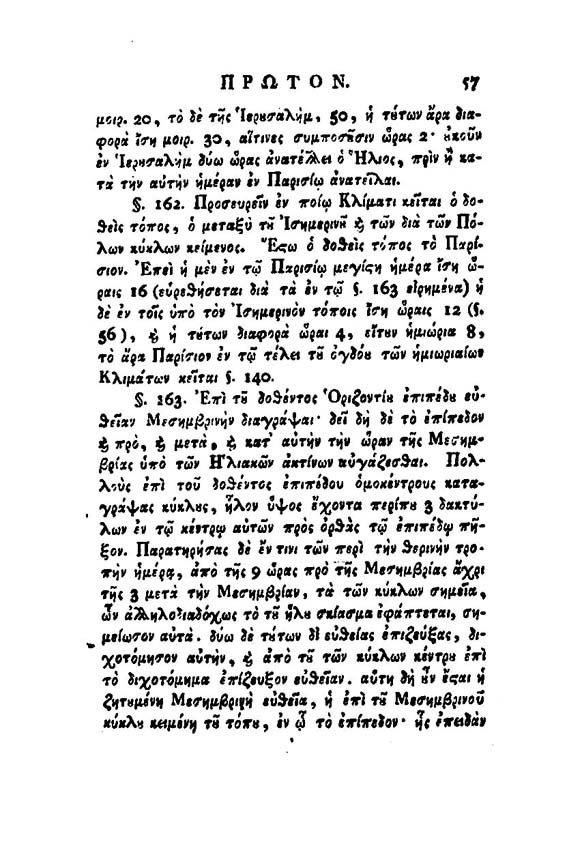 ΠΡΩΤΟΝ. 57
μοιρ. 20, τὸ δὲ τῆς Ἱερȣσαλὴμ, 50, ἡ τȣ́των ἄρα δια-
φορὰ ἴση μοιρ. 30, αἵτινες συμποσȣ͂σιν ὥρας 2· ȣ̓κοῦν
ἐν Ἱερȣσαλὴμ δύω ὥρας ἀνατέλλει ὁ Ἥλιος, πρὶν ἢ κα-
τὰ τὴν αὐτὴν ἡμέραν ἐν Παρισίῳ ἀνατεῖλαι.
§. 162. Προσευρεῖν ἐν ποίῳ Κλίματι κεῖται ὁ δο-
θεὶς τόπος, ὁ μεταξὺ τȣ͂ Ἰσημερινȣ͂ ϗ τῶν διὰ τῶν Πό-
λων κύκλων κείμενος. Ἔϛω ὁ δοθεὶς τόπος τὸ Παρί-
σιον. Ἐπεὶ ἡ μὲν ἐν τῷ Παρισίῳ μεγίϛη ἡμέρα ἴση ὥ-
ραις 16 (εὑρεθήσεται διὰ τὰ ἐν τῷ §. 163 εἰρημένα) ἡ
δὲ ἐν τοῖς ὑπὸ τὸν Ἰσημερινὸν τόποις ἴση ὥραις 12 (§.
56), ϗ ἡ τȣ́των διαφορὰ ὧραι 4, εἴτȣν ἡμιώρια 8,
τὸ ἄρα Παρίσιον ἐν τῷ τέλει τȣ͂ ὀγδόȣ τῶν ἡμιωριαίων
Κλιμάτων κεῖται §. 140.
§. 163. Ἐπὶ τȣ͂ δοθέντος Ὁριζοντίȣ ἐπιπέδȣ εὐ-
θεῖαν Μεσημβρινὴν διαγράψαι· δεῖ δὴ δὲ τὸ ἐπίπεδον
ϗ πρὸ, ϗ μετὰ, ϗ κατ' αὐτὴν τὴν ὥραν τῆς Μεσημ-
βρίας ὑπὸ τῶν Ἡλιακῶν ἀκτίνων αὐγάζεσθαι. Πολ-
λοὺς ἐπὶ τοῦ δοθέντος ἐπιπέδου ὁμοκέντρους κατα-
γράψας κύκλȣς, ἧλον ὕψος ἔχοντα περίπȣ 3 δακτύ-
λων ἐν τῷ κέντρῳ αὐτῶν πρὸς ὀρθὰς τῷ ἐπιπέδῳ πῆ-
ξον. Παρατηρήσας δὲ ἔν τινι τῶν περὶ τὴν θερινὴν τρο-
πὴν ἡμέρᾳ, ἀπὸ τῆς 9 ὥρας πρὸ τῆς Μεσημβρίας ἄχρι
τῆς 3 μετὰ τὴν Μεσημβρίαν, τὰ τῶν κύκλων σημεῖα,
ὧν ἀλληλοδιαδόχως τὸ τȣ͂ ἥλȣ σκίασμα ἐφάπτεται, ση-
μείωσον αὐτά. δύω δὲ τȣ́των δι' εὐθείας ἐπιζεύξας, δι-
χοτόμησον αὐτὴν, ϗ ἀπὸ τȣ͂ τῶν κύκλων κέντρȣ ἐπὶ
τὸ διχοτόμημα ἐπίζευξον εὐθεῖαν. αὕτη δὴ ȣ̓͂ν ἔϛαι ἡ
ζητȣμένη Μεσημβρινὴ εὐθεῖα, ἡ ἐπὶ τȣ͂ Μεσημβρινοῦ
κύκλȣ κειμένη τȣ͂ τόπȣ, ἐν ᾧ τὸ ἐπίπεδον· ἧς ἐπειδὰν